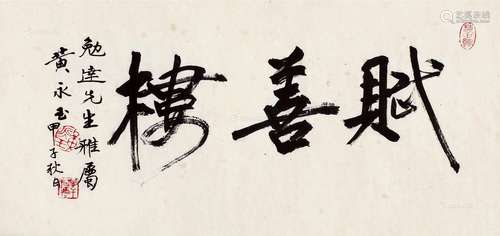 賦善樓
勉達先生雅屬
黄永玉甲子秋日